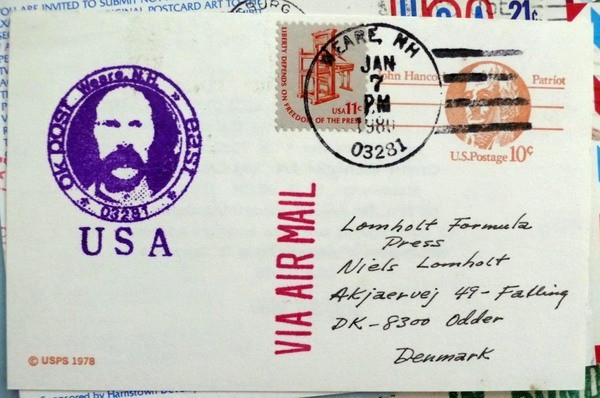 YOU ARE INVITED TO SUBMIT
ORIGINAL POSTCARD ART TO
BURG
USA 21¢
OK POST Weare, N.H. EAST
03281
USA
LIBERTY DEPENDS ON FREEDOM OF THE PRESS
USA 11c
WEARE, NH
JAN
7
PM
03281
John Hancock
Patriot
U.S. Postage 10¢
VIA AIR MAIL
Lomholt Formula
Press
Niels Lomholt
Akjaervej 49 - Falling
DK - 8300 Odder
Denmark
© USPS 1978
Sponsored by Hamstown